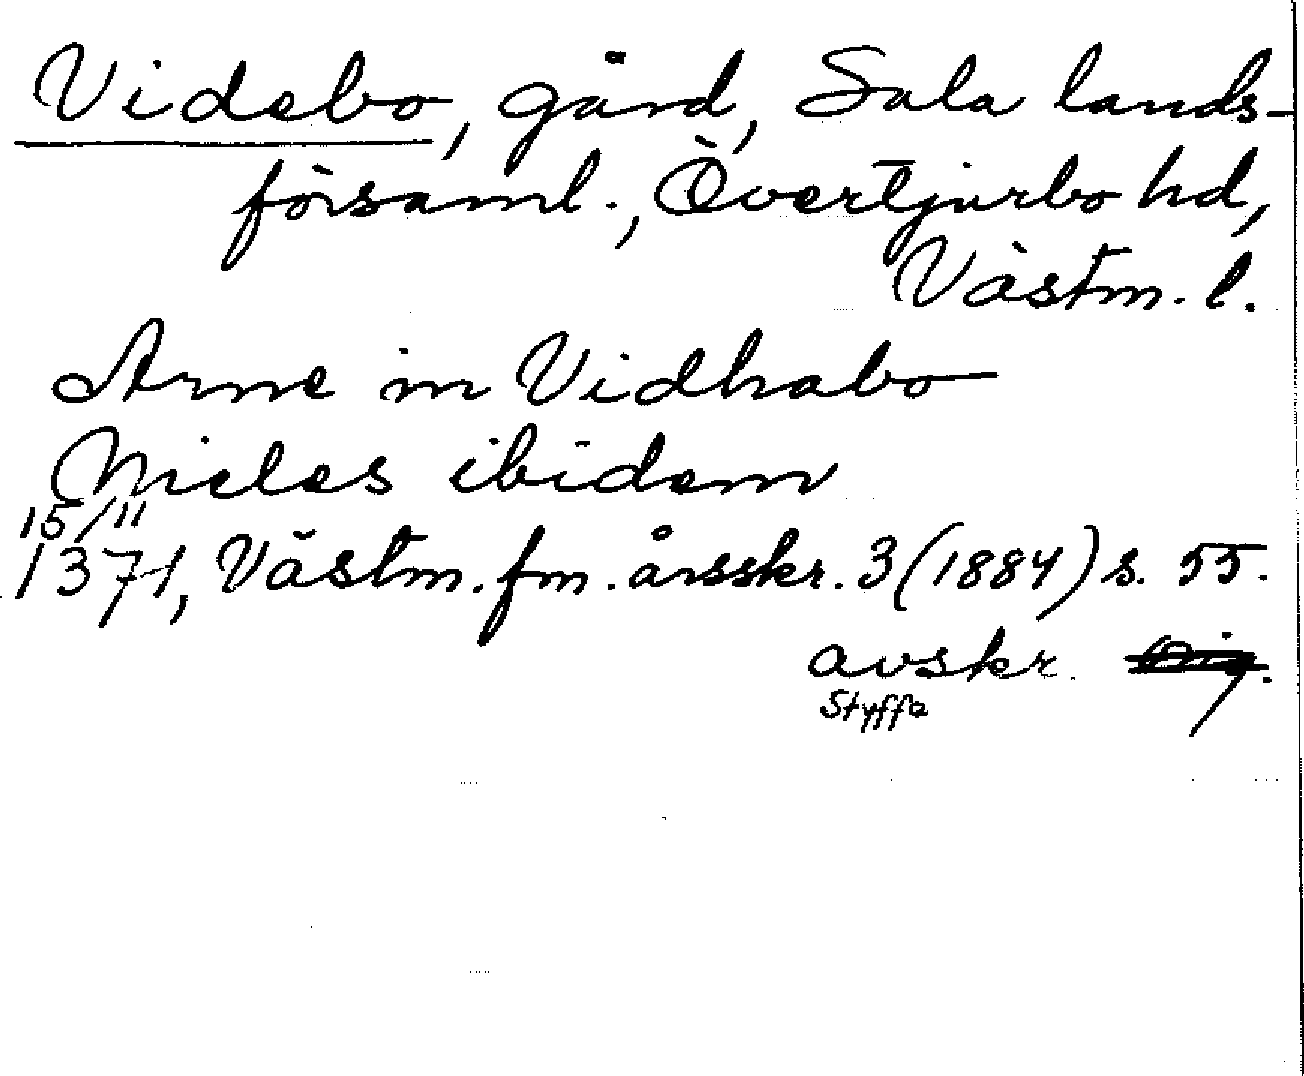 Videbo, gård, Sala lands-
församl., Övertjurbo hd,
Västm. l.
Arne in Vidhabo
Nicles ibidem
15/11
1371, Västm. fm. årsskr. 3 (1884) s. 55.
avskr.
Styffe